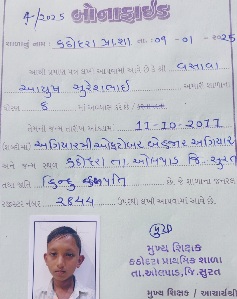 બોનાફાઈડ
શાળાનું નામ : કઠોદરા પ્રા.શા તા. :09-01-2025
આથી પ્રમાણપત્ર લખી આપવામાં આવે છે કે શ્રી વસાવા
આયુષ સુરેશભાઈ અમારી શાળાના
ધોરણ ૬ માં અભ્યાસ કરે છે /
તેમની જન્મ તારીખ આંકડામાં 11-10-2011
(શબ્દોમાં) અગિયારમી ઓક્ટોબર બેહજાર અગિયાર
અને જન્મ સ્થળ કઠોદરા તા. ઓલપાડ જિ. સુરત
તથા જ્ઞાતિ હિન્દુ છે. જે શાળાના જનરલ
રજીસ્ટર નંબર 2844 ઉપરથી લખી આપવામાં આવે છે.
મુખ્ય શિક્ષક
કઠોદરા પ્રાથમિક શાળા
તા.ઓલપાડ, જિ.સુરત
મુખ્ય શિક્ષક / આચાર્યશ્રી